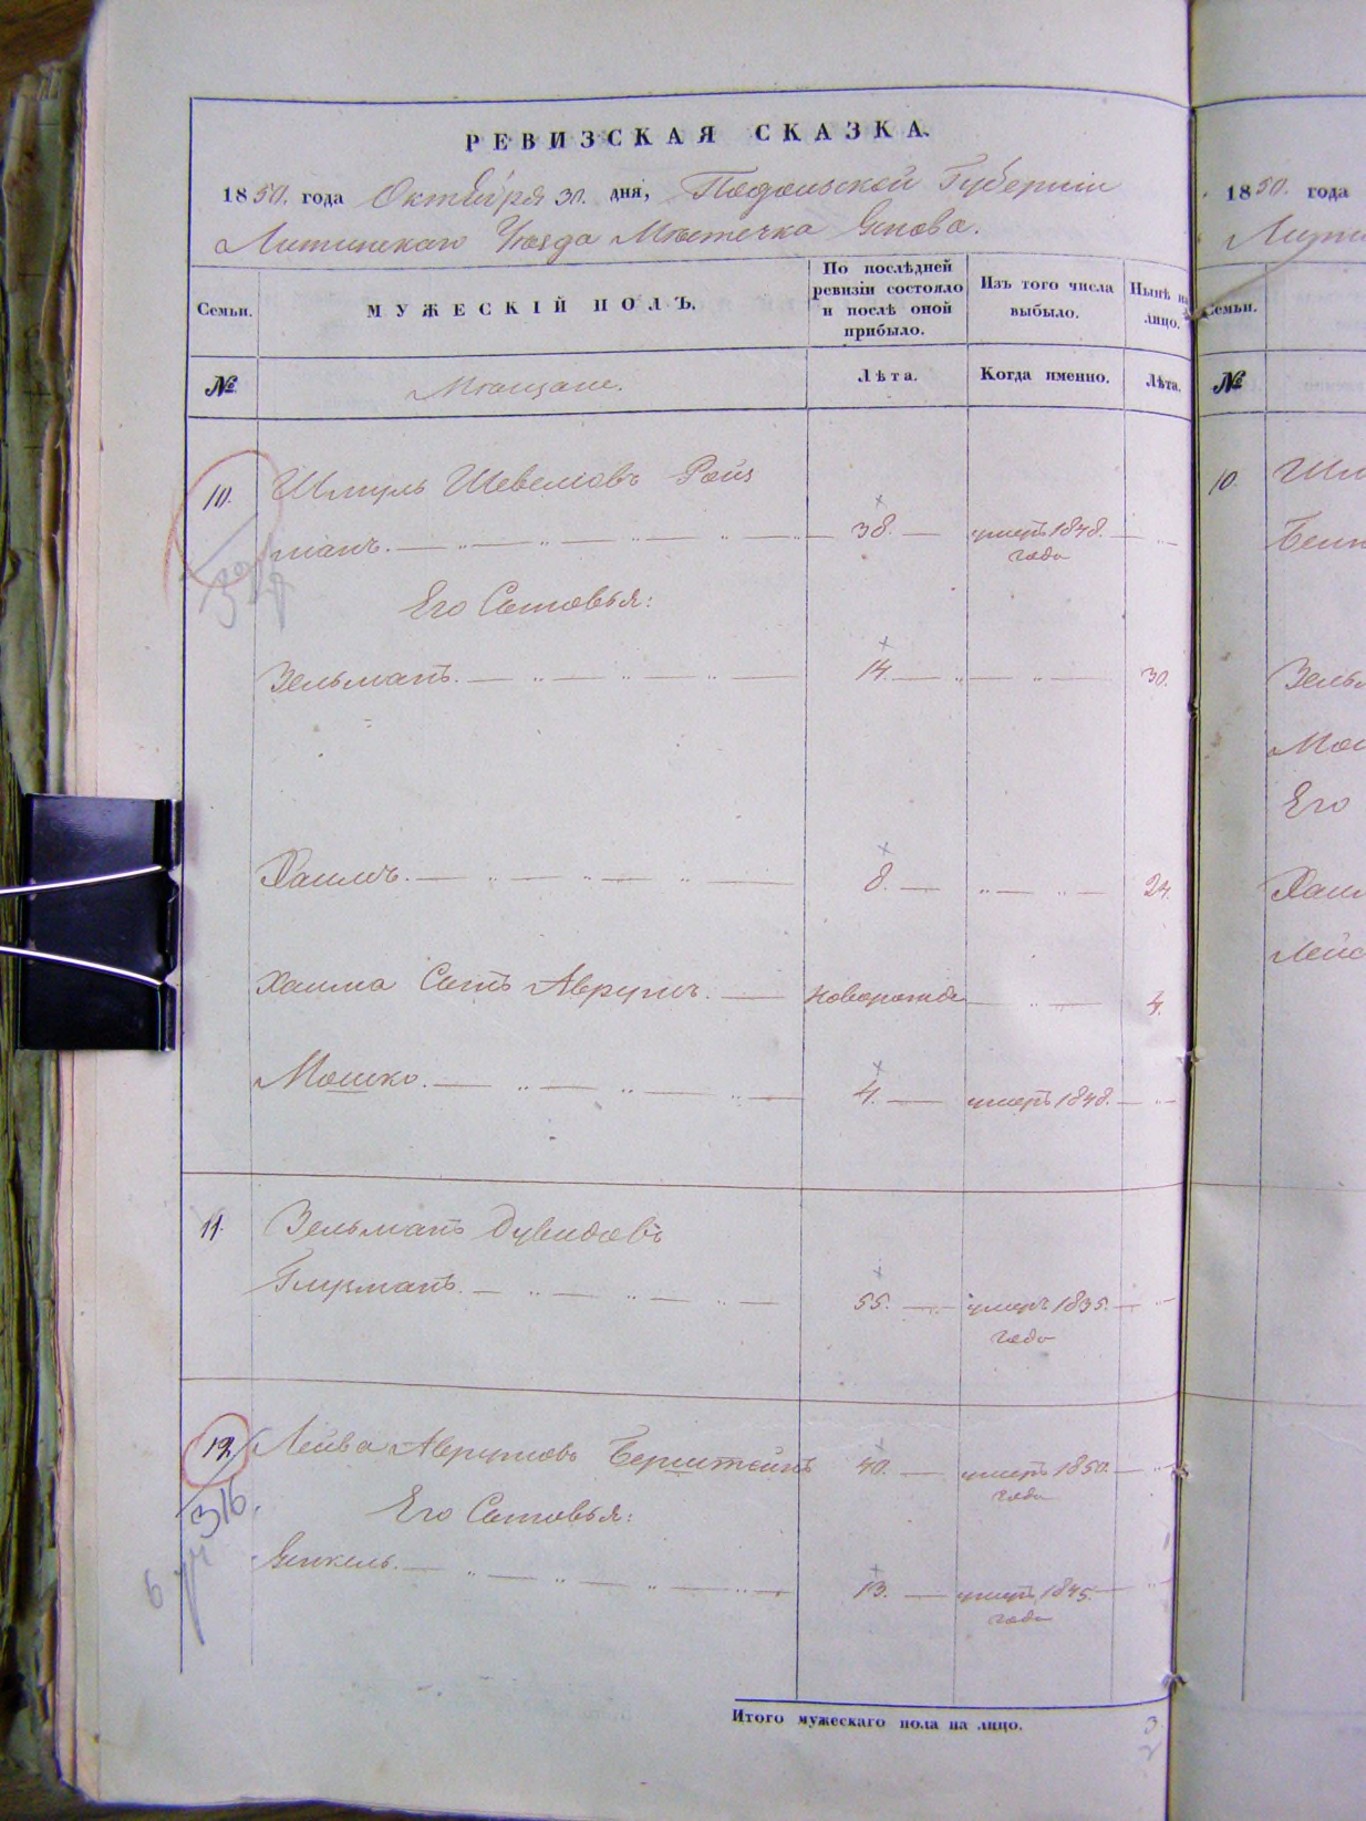 РЕВИЗСКАЯ СКАЗКА.
1850. года Октября 30. дня, Подольской Губернiи
Литинскаго Уѣзда Мѣстечка Янова.
Семьи.
МУЖЕСКIЙ ПОЛЪ.
По послѣдней ревизiи состояло и послѣ оной прибыло.
Изъ того числа выбыло.
Нынѣ на лицо.
№
Мѣщане.
Лѣта.
Когда именно.
Лѣта.
10. Шмуль Шевелiовъ Ройз
манъ. 38. умеръ 1848. года
Его Сыновья:
Зельманъ. 14. 30.
Хаимъ. 8. 24.
Хаима Сынъ Аврумъ. Новорожде 4.
Мошко. 4. умеръ 1848.
11. Зельманъ Дувидовъ
Глузманъ. 55. умеръ 1835. года
12 Лейба Аврумовъ Берштейнъ 40. умеръ 1850. года
316.
Его Сыновья:
Янкель. 13. умеръ 1845. года
6
Итого мужескаго пола на лицо. 3
1850. года
Лити
Семьи.
№
10. Шм
Зельм
Мош
Его
Хаим
Лейб